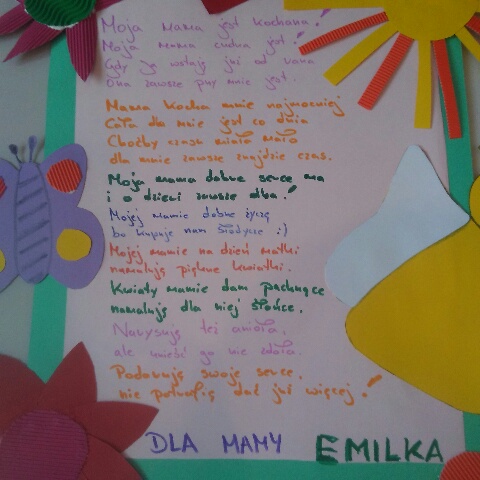 Moja Mama jest kochana!
Moja mama cudna jest!
Gdy ja wstaję już od rana
Ona zawsze przy mnie jest.
Mama kocha mnie najmocniej
Cała dla mnie jest co dnia
Choćby czasu miała mało
dla mnie zawsze znajdzie czas.
Moja mama dobre serce ma
i o dzieci zawsze dba!
Mojej mamie dobrze życzę
bo kupuje nam słodycze :)
Mojej mamie na dzień matki
namaluję piękne kwiatki.
Kwiaty mamie dam pachnące
namaluję dla niej słońce.
Narysuję też anioła,
ale unieść go nie zdoła.
Podaruję swoje serce,
nie potrafię dać już więcej!
DLA MAMY EMILKA